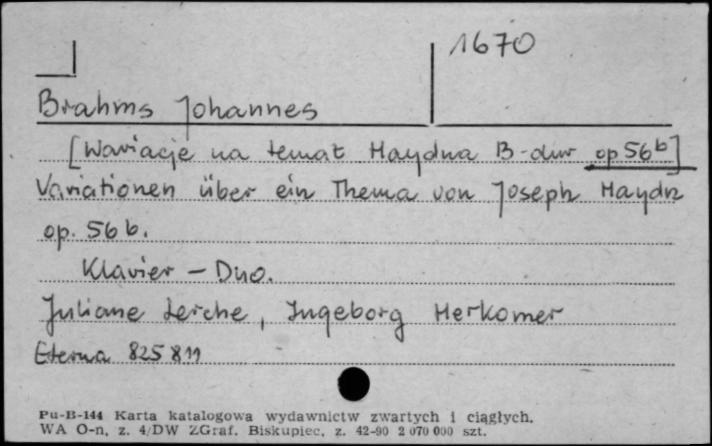 1670
Brahms Johannes
[Wariacje na temat Haydna B-dur op 56b]
Variationen über ein Thema von Joseph Haydn
op. 56 b.
Klavier - Duo.
Juliane Lerche, Ingeborg Herkomer
Eterna 825 811
Pu-B-144 Karta katalogowa wydawnictw zwartych i ciągłych.
WA O-n, z. 4/DW ZGraf. Biskupiec, z. 42-90 2 070 000 szt.